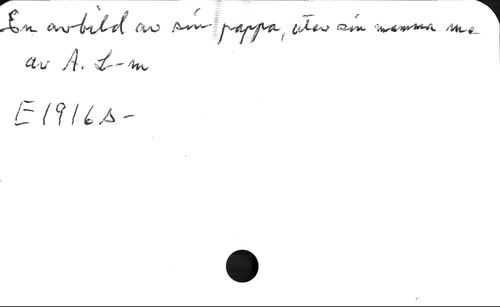 En avbild av sin pappa, utav sin mamma me
av A. L-m
E 1916 s-